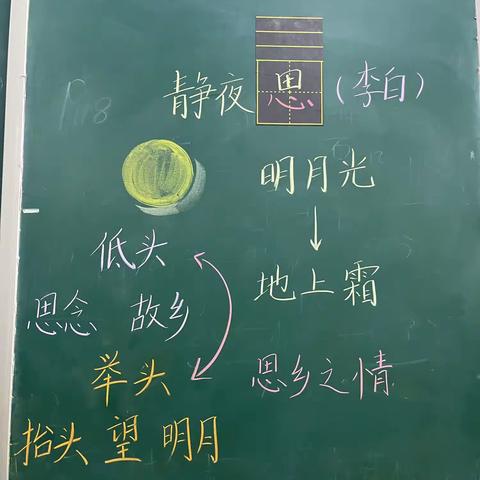 静夜思（李白）
明月光
低头
地上霜
思念 故乡
举头
思乡之情
抬头 望 明月